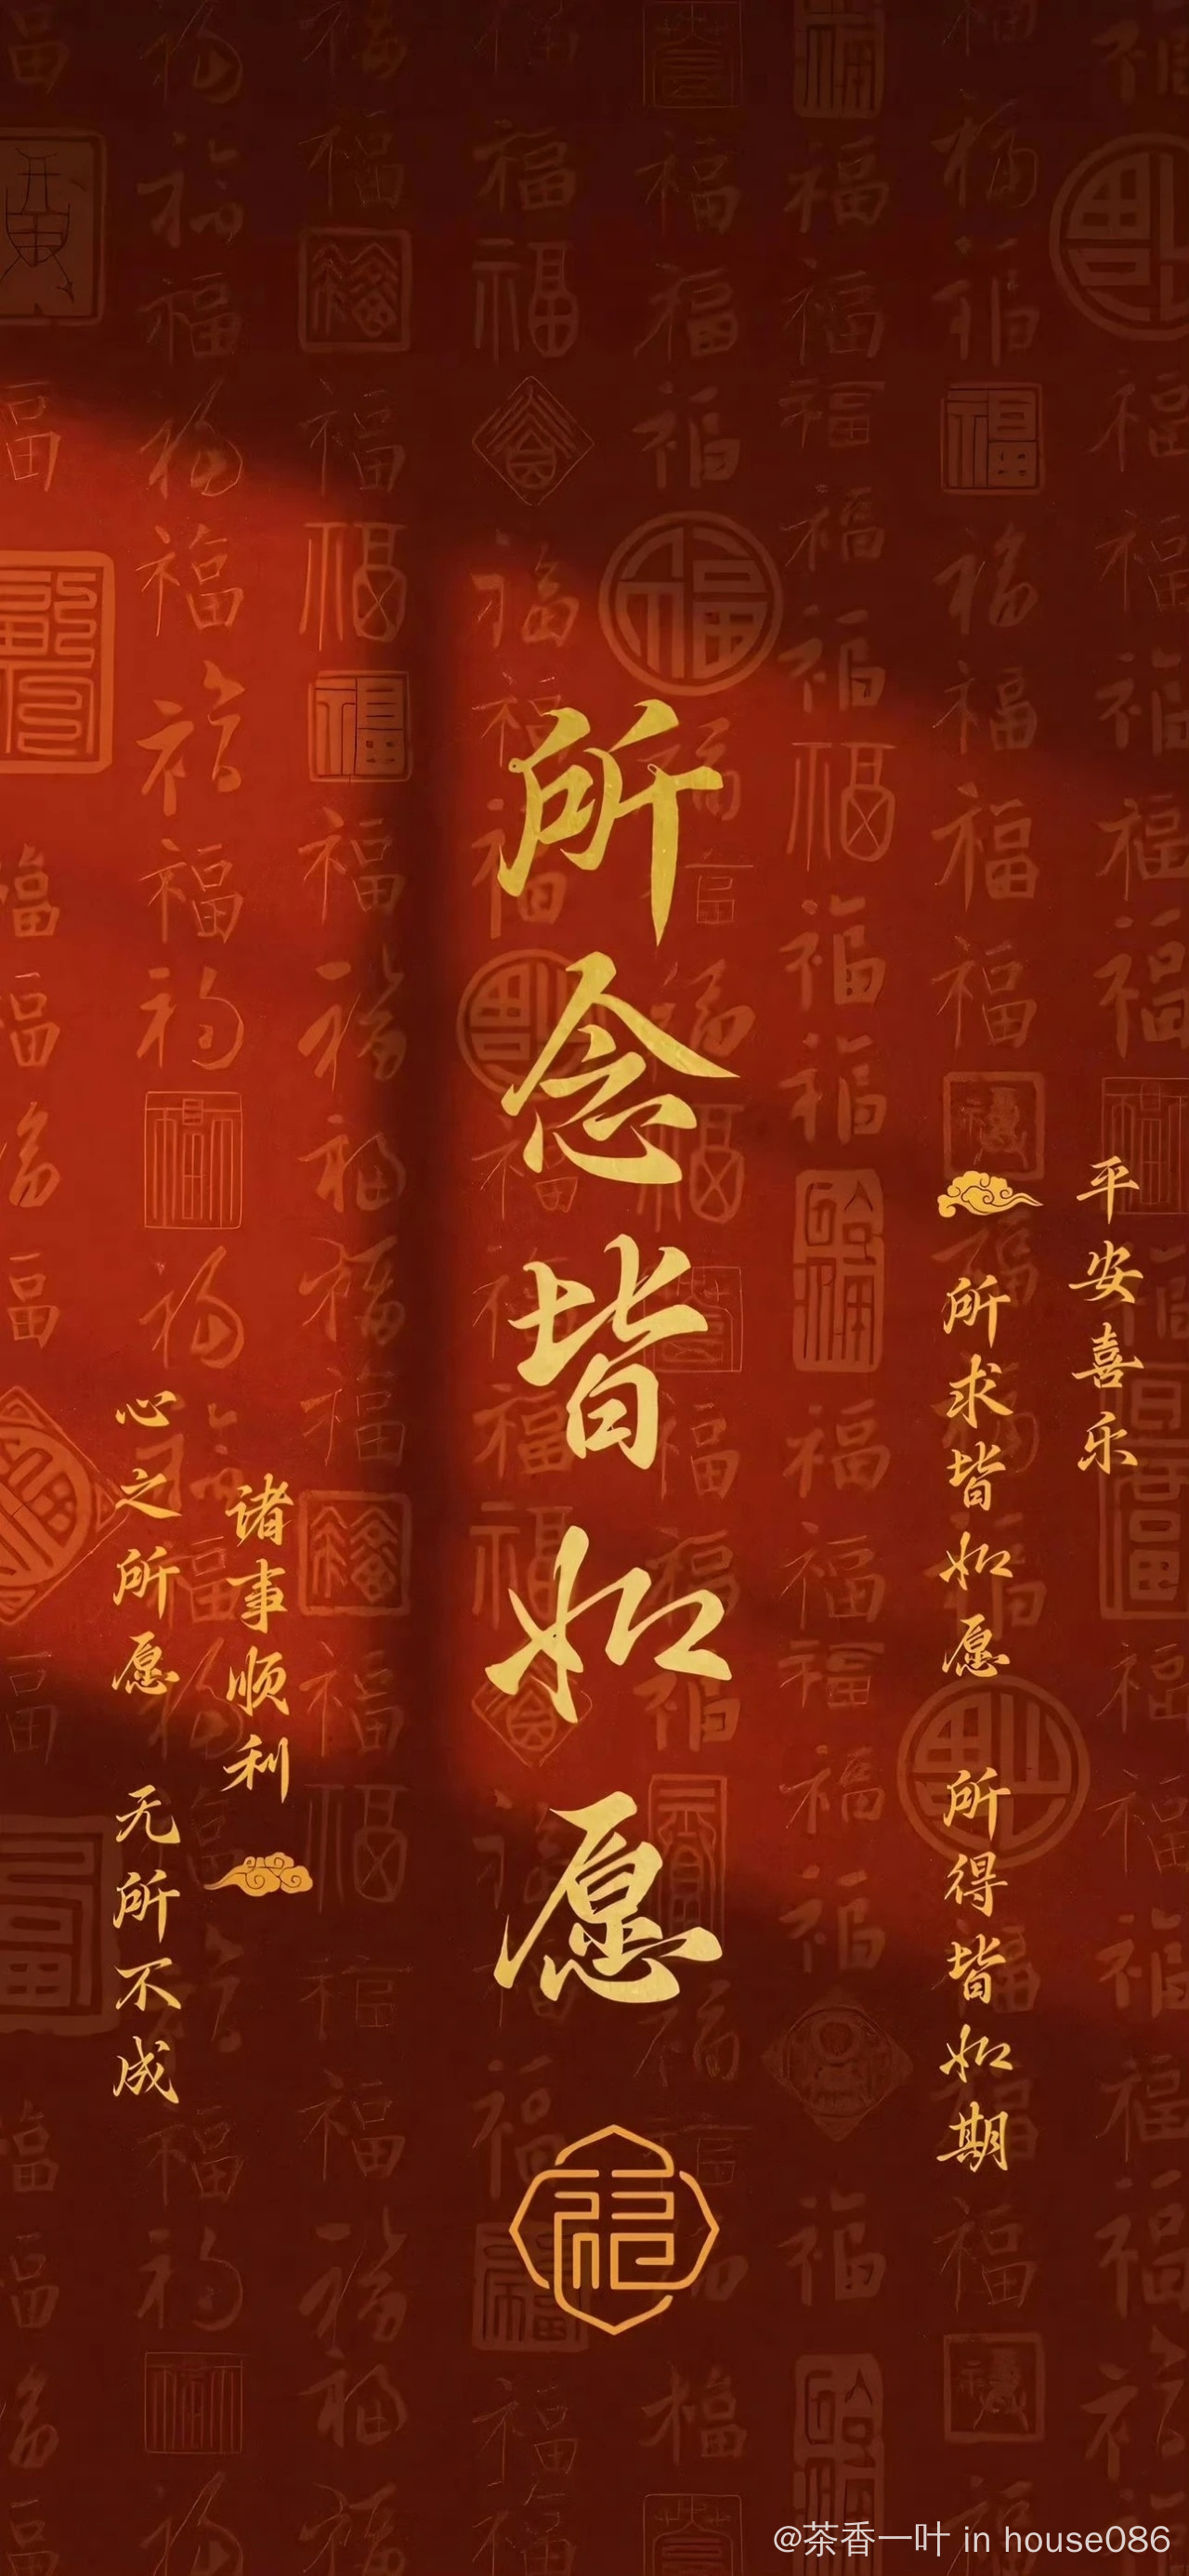 平安喜乐
所求皆如愿 所得皆如期
所念皆如愿
诸事顺利
心之所愿 无所不成
@茶香一叶 in house086